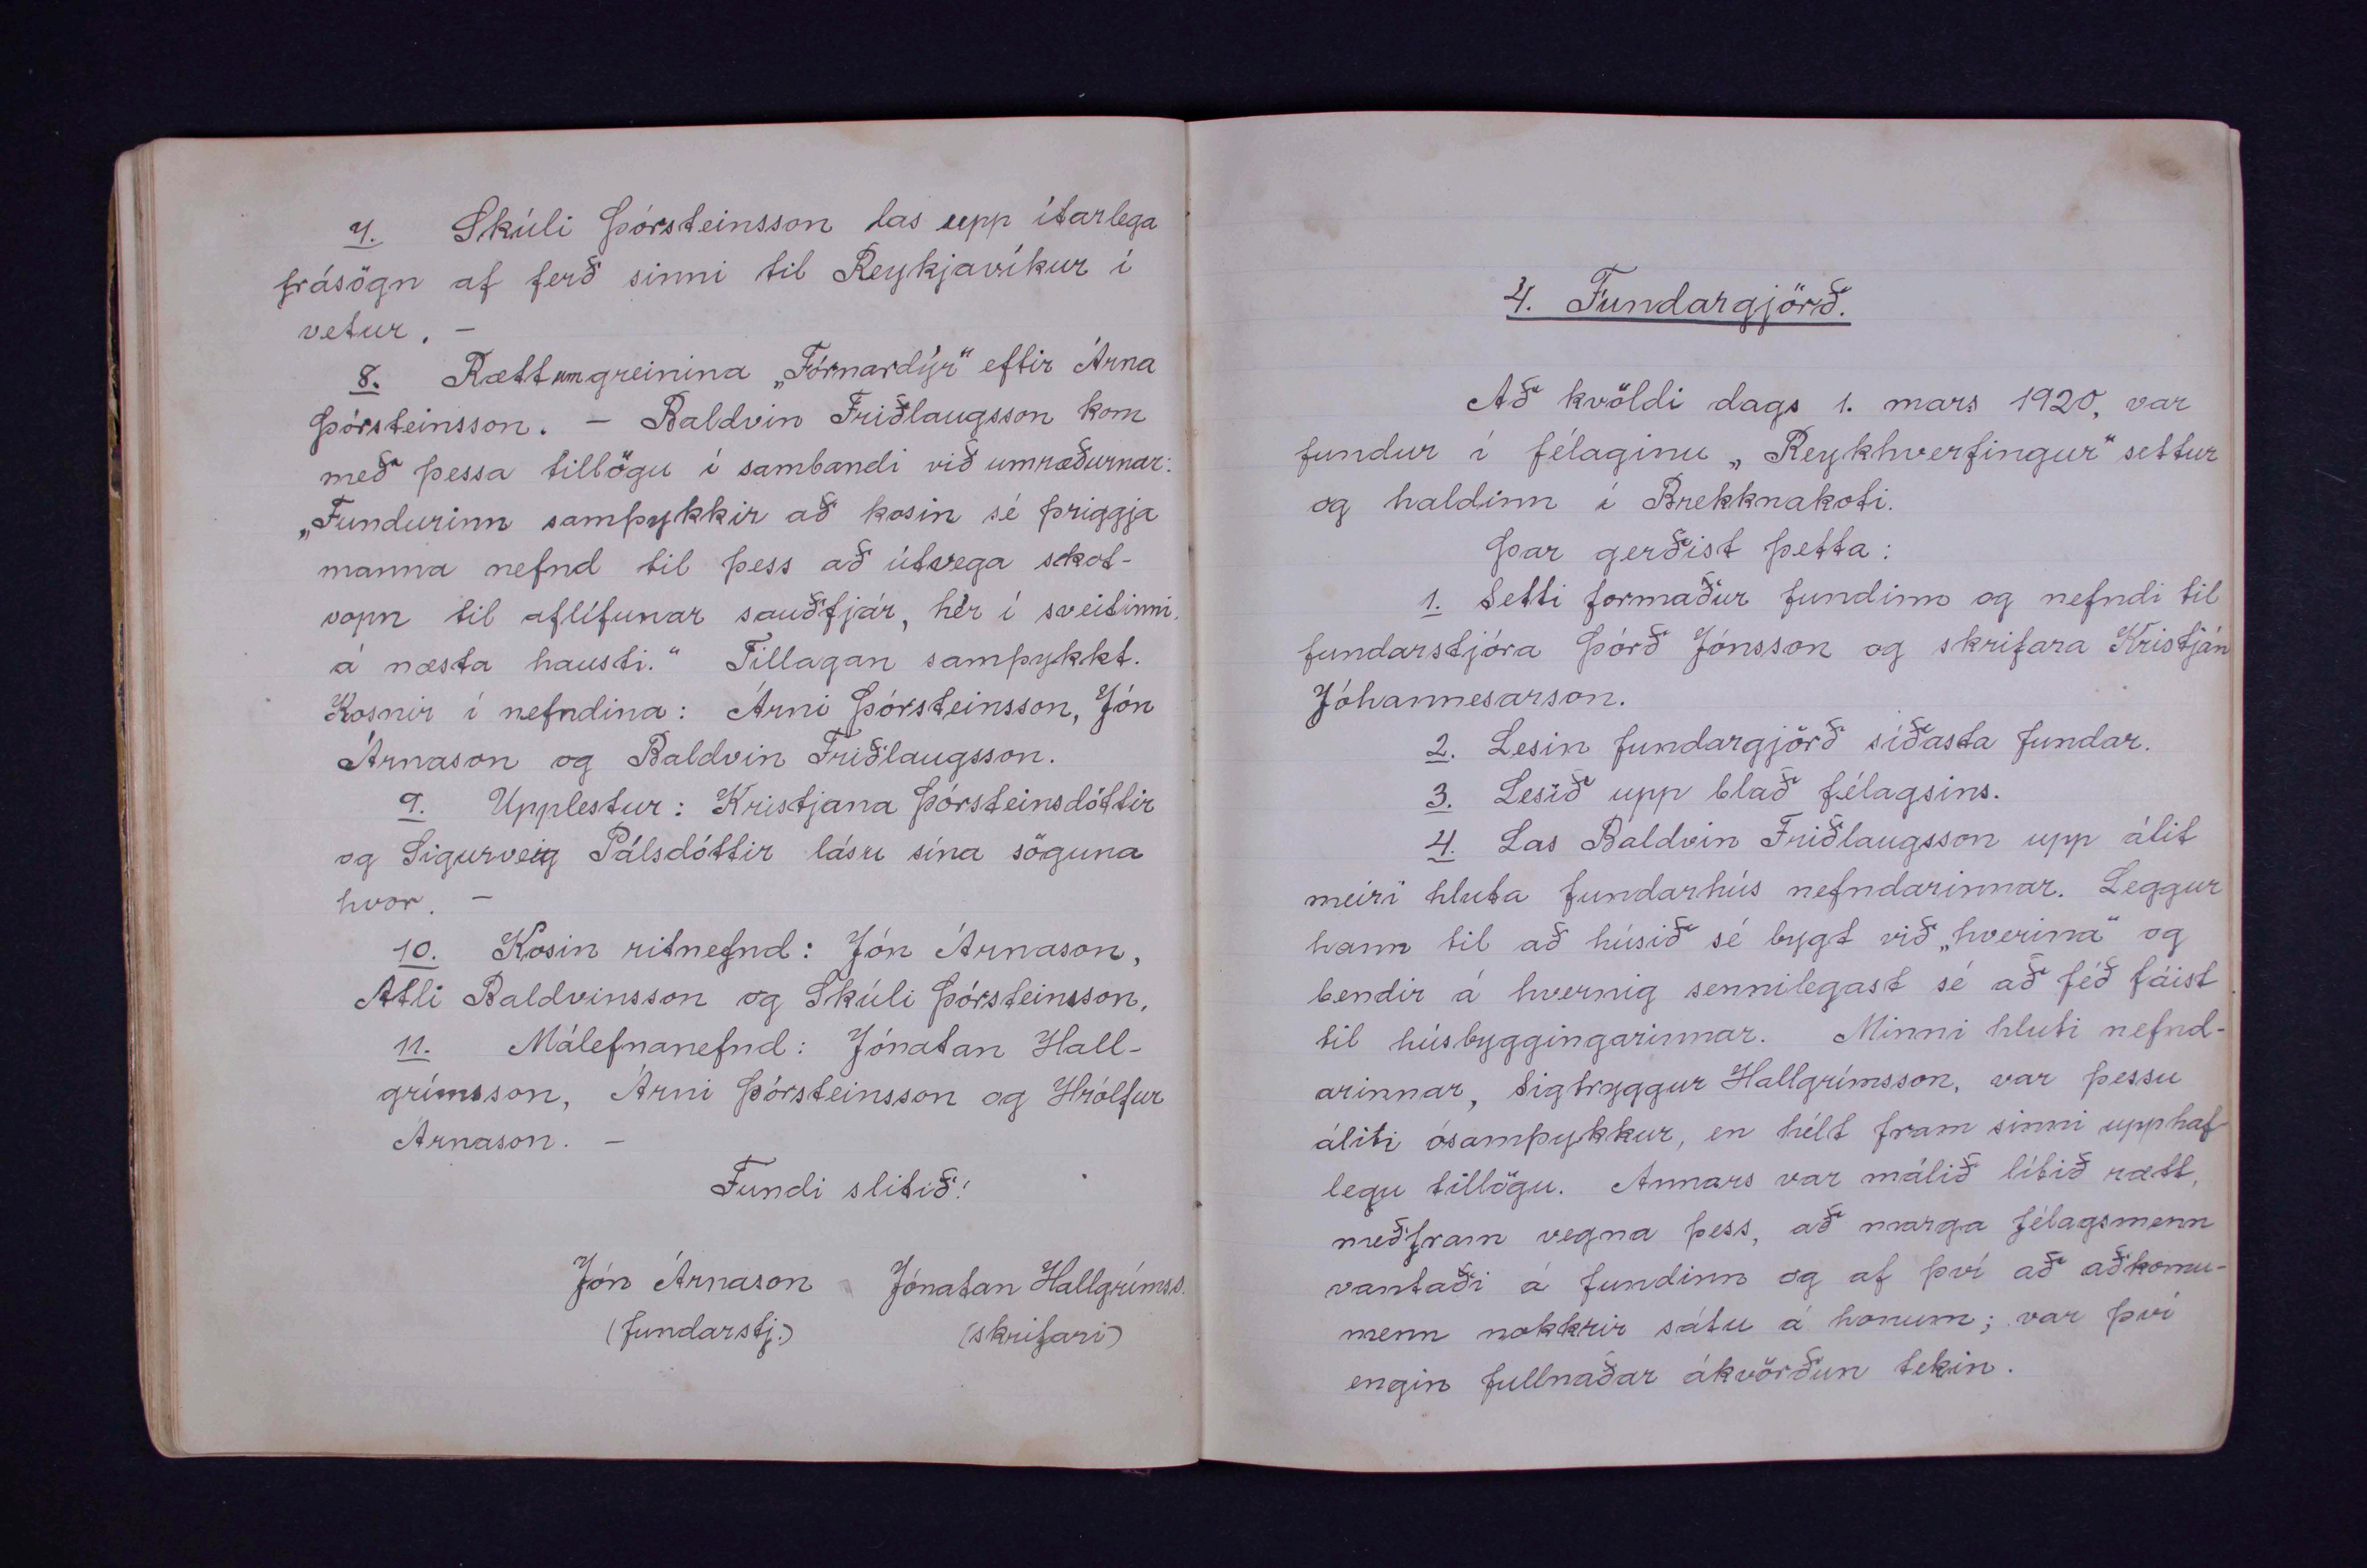 7. Skúli Þórsteinsson las upp ítarlega
frásögn af ferð sinni til Reykjavíkur í
vetur. –
8. Rætt um greinina „Fórnardýr“ eftir Árna
Þórsteinsson. – Baldvin Friðlaugsson kom
með þessa tillögu í sambandi við umræðurnar:
„Fundurinn samþykkir að kosin sé þriggja
manna nefnd til þess að útvega skot-
vopn til aflífunar sauðfjár, hér í sveitinni,
á næsta hausti.“ Tillagan samþykkt.
Kosnir í nefndina: Árni Þórsteinsson, Jón
Árnason og Baldvin Friðlaugsson.
9. Upplestur: Kristjana Þórsteinsdóttir
og Sigurveig Pálsdóttir lásu sína söguna
hvor. –
10. Kosin ritnefnd: Jón Árnason,
Atli Baldvinsson og Skúli Þórsteinsson.
11. Málefnanefnd: Jónatan Hall-
grímsson, Árni Þórsteinsson og Hrólfur
Árnason. –
Fundi slitið!
Jón Árnason Jónatan Hallgrímss.
(fundarstj.) (skrifari)
4. Fundargjörð.
Að kvöldi dags 1. mars 1920, var
fundur í félaginu „Reykhverfingur“ settur
og haldinn í Brekknakoti.
Þar gerðist þetta:
1. Setti formaður fundinn og nefndi til
fundarstjóra Þórð Jónsson og skrifara Kristján
Jóhannesarson.
2. Lesin fundargjörð síðasta fundar.
3. Lesið upp blað félagsins.
4. Las Baldvin Friðlaugsson upp álit
meiri hluta fundarhús nefndarinnar. Leggur
hann til að húsið sé bygt við „hverina“ og
bendir á hvernig sennilegast sé að féð fáist
til húsbyggingarinnar. Minni hluti nefnd-
arinnar, Sigtryggur Hallgrímsson, var þessu
áliti ósamþykkur, en hélt fram sinni upphaf-
legu tillögu. Annars var málið lítið rætt,
meðfram vegna þess, að marga félagsmenn
vantaði á fundinn og af því að aðkomu-
menn nokkrir sátu á honum; var því
engin fullnaðar ákvörðun tekin.